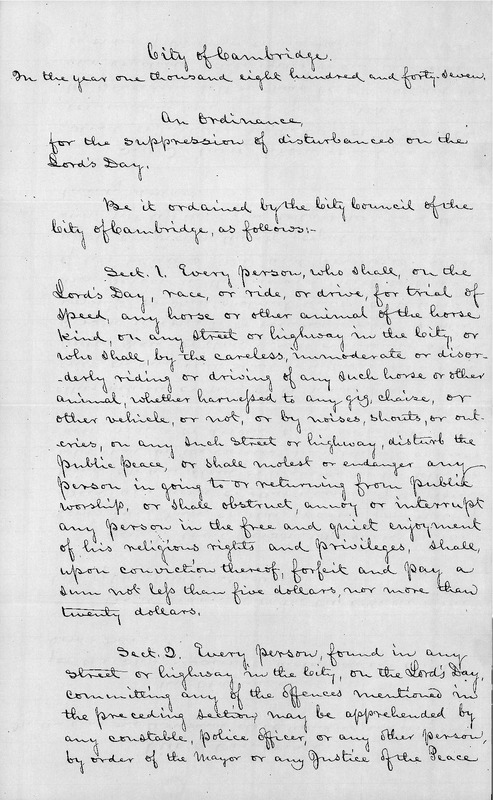 City of Cambridge.
In the year one thousand eight hundred and forty-seven.
An Ordinance,
for the suppression of disturbances on the
Lord's Day.
Be it ordained by the City Council of the
City of Cambridge, as follows:-
Sect. 1. Every person, who shall, on the
Lord's Day, race, or ride, or drive, for trial of
speed, any horse or other animal of the horse
kind, on any street or highway in the City, or
who shall, by the careless, immoderate or disor-
-derly riding or driving of any such horse or other
animal, whether harnessed to any gig, chaize, or
other vehicle, or not, or by noises, shouts, or out-
cries, on any such street or highway, disturb the
public peace, or shall molest or endanger any
person in going to or returning from public
worship, or shall obstruct, annoy or interrupt
any person in the free and quiet enjoyment
of his religious rights and privileges, shall,
upon conviction thereof, forfeit and pay a
sum not less than five dollars, nor more than
twenty dollars.
Sect. 2. Every person, found in any
street or highway in the City, on the Lord's Day,
committing any of the offences mentioned in
the preceding section, may be apprehended by
any constable, police officer, or any other person,
by order of the Mayor or any Justice of the Peace